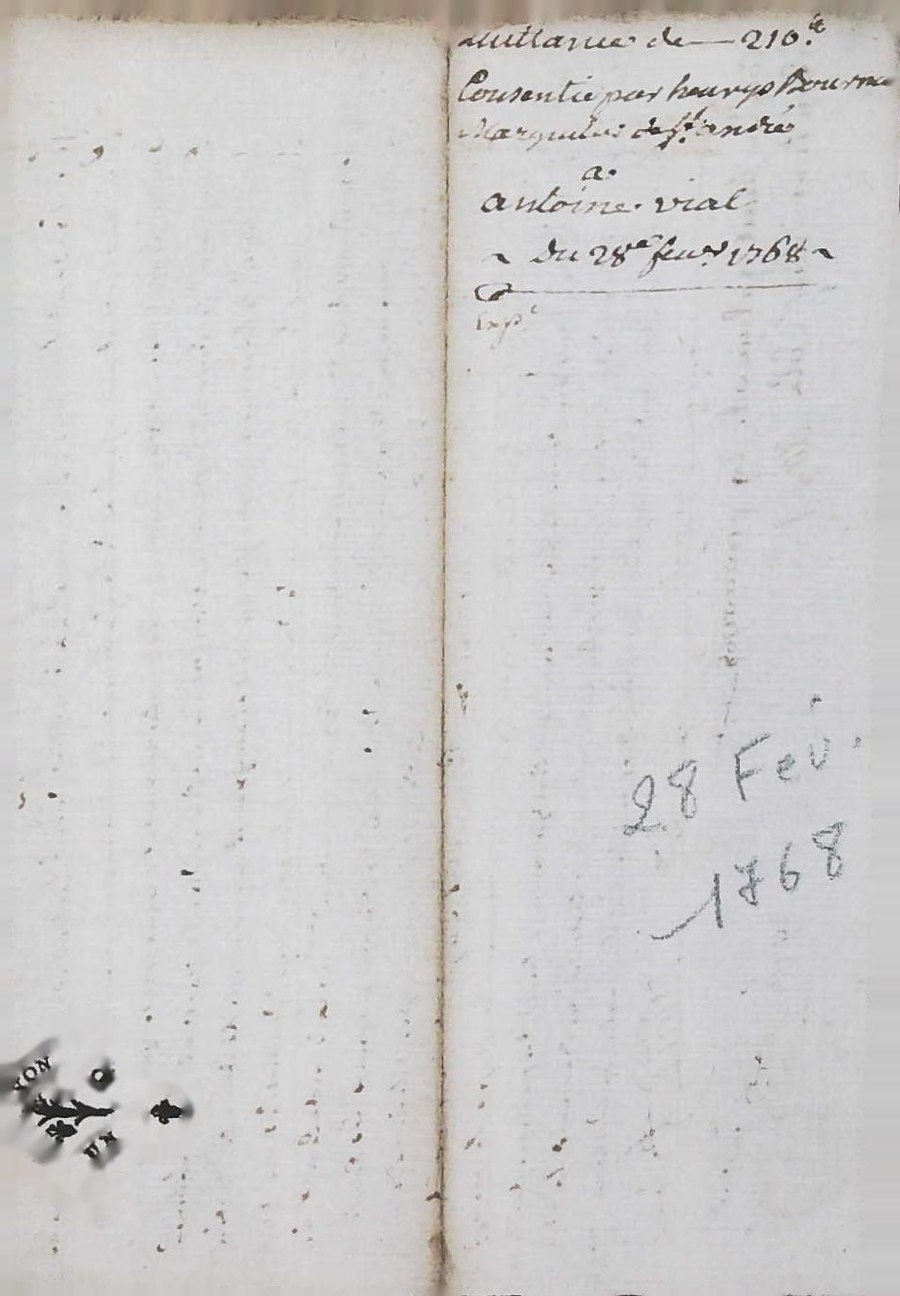 quittance de 210.#
Consentie par heurys Bourn
Marguilier de St. andré
a.
antoine vial
~ du 28e feuer 1768 ~
Exp.e
28 Fev.
1768
YON
UN